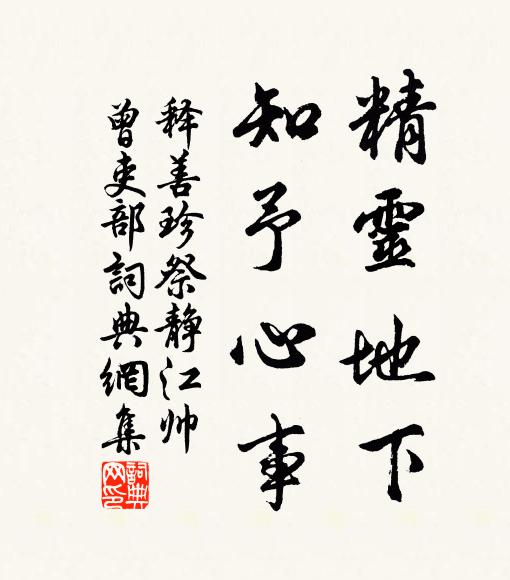 精靈地下
知予心事
释善珍祭静江帅
曾吏部詞典網集
詞典网印